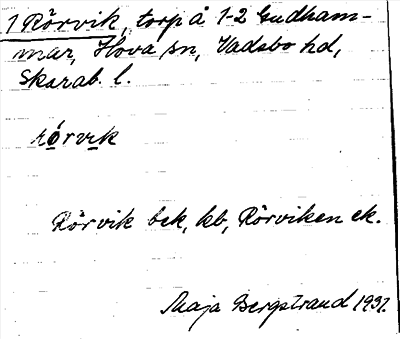 1 Rörvik, torp å 1-2 Gudham-
mar, Hova sn, Vadsbo hd,
Skarab. l.
rórvik
Rörvik bek, kb, Rörviken ek.
Maja Bergstrand 1931.